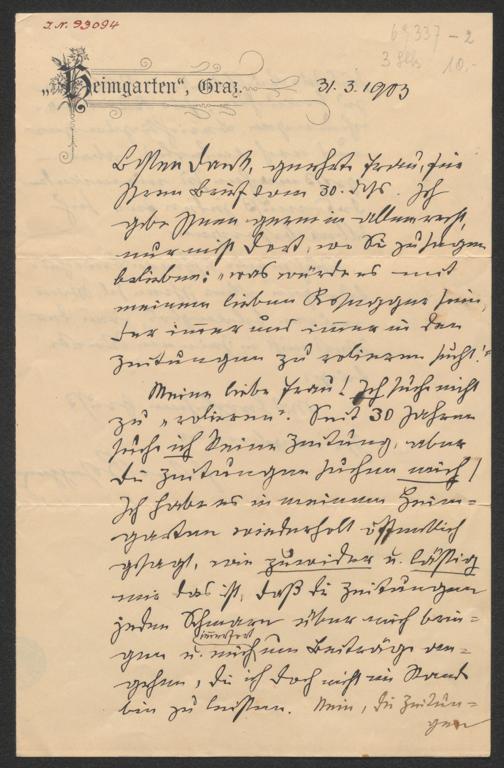 I.N. 93094
63337 - 2
3 Stk 10.-
„Heimgarten“, Graz.
31. 3. 1903
Besten Dank, geehrte Frau, für
Ihren Brief vom 30. ds. Ich
gebe Ihnen gerne in allem recht,
nur nicht dort, wo Sie zu sagen
belieben: „was würde es mit
meinem lieben Rosegger sein,
der immer und immer in den
Zeitungen zu rolieren sucht!“
Meine liebe Frau! Ich suche nicht
zu „rolieren“. Seit 30 Jahren
suche ich keine Zeitung, aber
die Zeitungen suchen mich!
Ich habe es in meinem Heim=
garten wiederholt öffentlich
gesagt, wie zuwider u. lästig
mir das ist, daß die Zeitungen
jeden Schmarn über mich brin=
gen u. mich immerfort um Beiträge an=
gehen, die ich doch nicht im Stande
bin zu leisten. Nein, die Zeitun=
gen